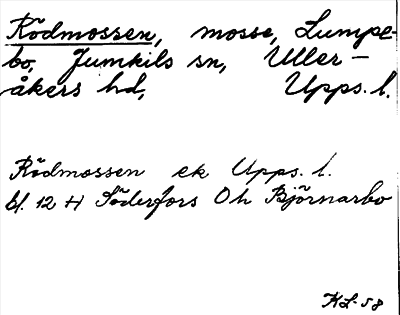 Rödmossen, mosse, Lumpe-
bo, Jumkils sn, Uller-
åkers hd, Upps. l.
Rödmossen ek Upps. l.
bl. 12 H Söderfors Oh Björnarbo
KL-58